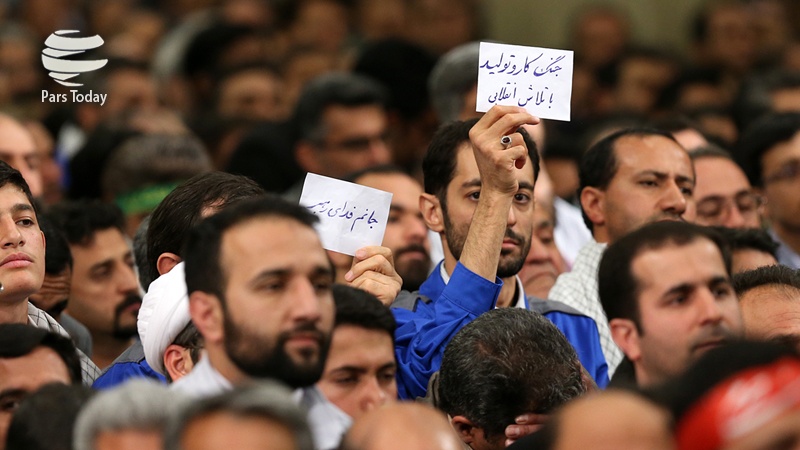 Pars Today
جنگ کار و تولید
با تلاش انقلابی
جانم فدای رهبر